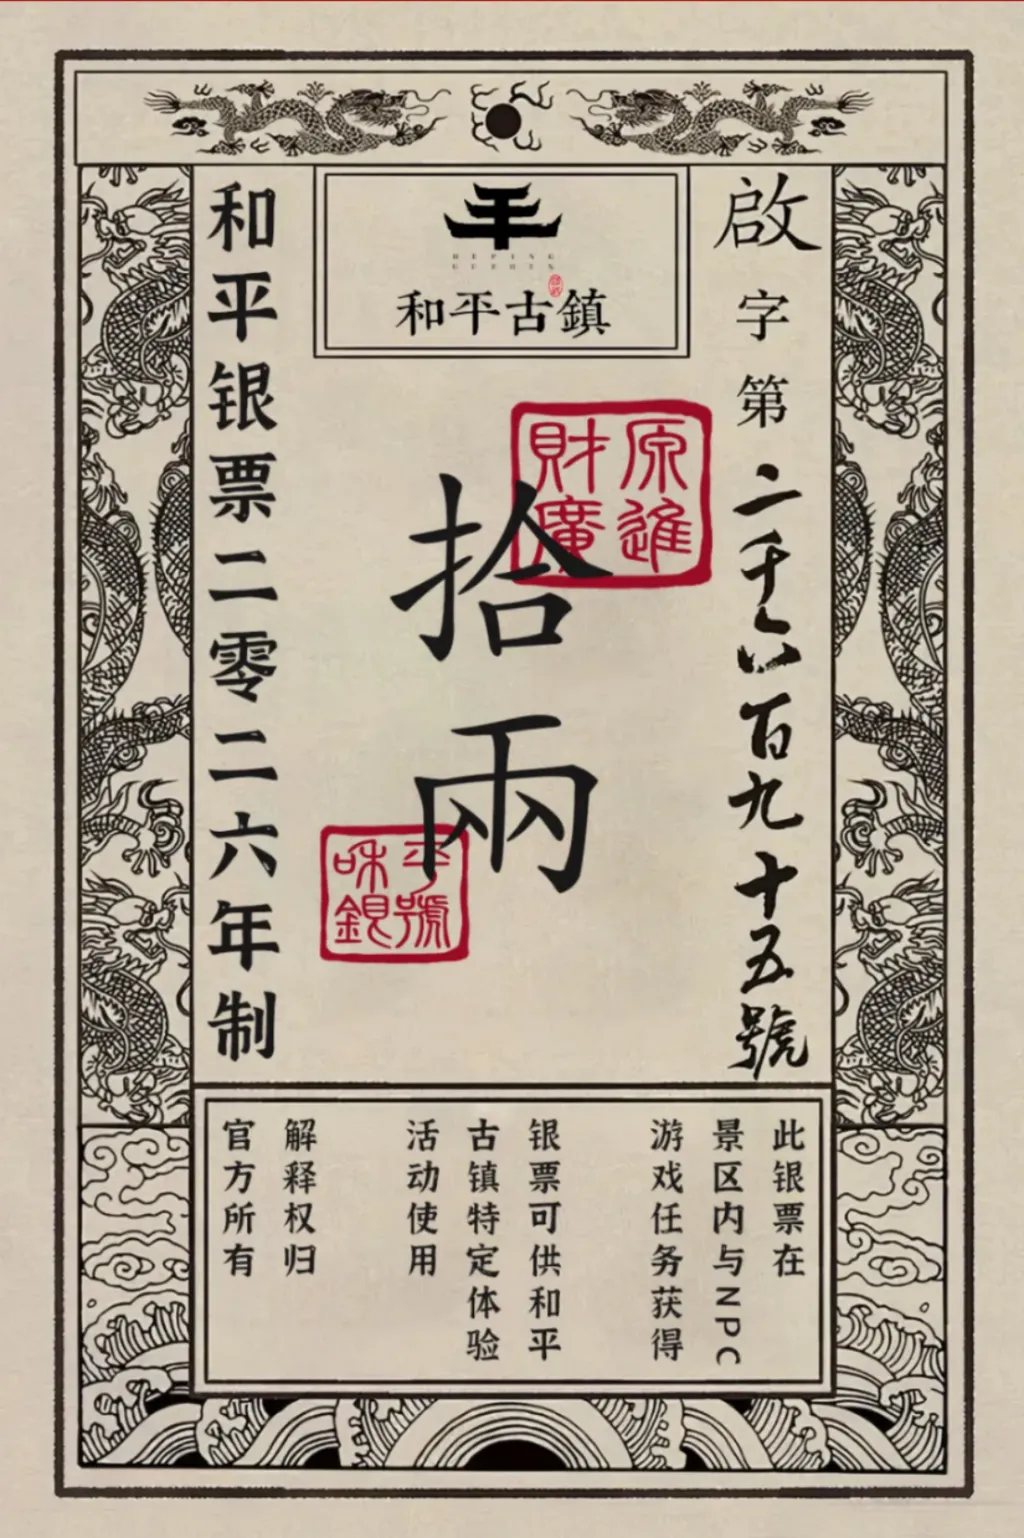 HEPING
GUZHEN
和平古鎮
啟字第二千六百九十五號
拾兩
和平银票二零二六年制
源進
財廣
平號
咊銀
此银票在
景区内与NPC
游戏任务获得
银票可供和平
古镇特定体验
活动使用
解释权归
官方所有